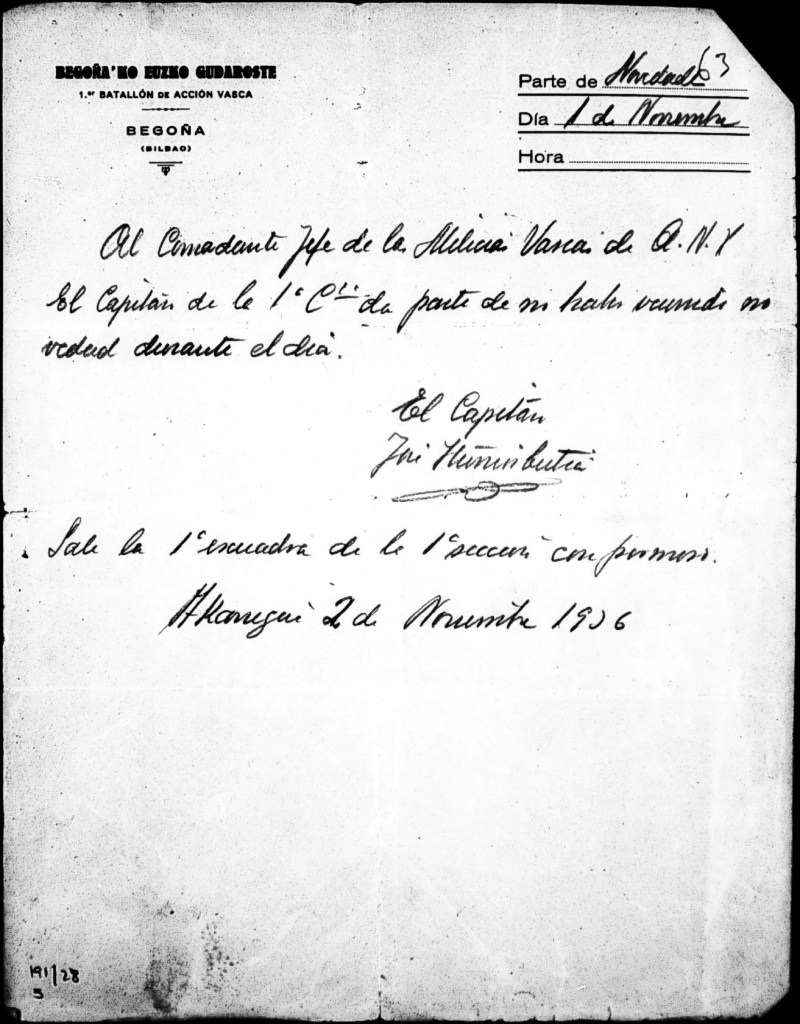 BEGOÑA'KO EUZKO GUDAROSTE
1.er BATALLÓN DE ACCIÓN VASCA
BEGOÑA
(BILBAO)
63
Parte de Novedad
Día 1 de Novembre
Hora
Al Comadante Jefe de las Milicias Vascas de A.N.V
El Capitán de la 1ª Cía da parte de no haber ocurrido no
vedad durante el día.
El Capitán
José
Sale la 1ª escuadra de la 1ª sección con permiso.
2 de Novembre 1936
191/28
5